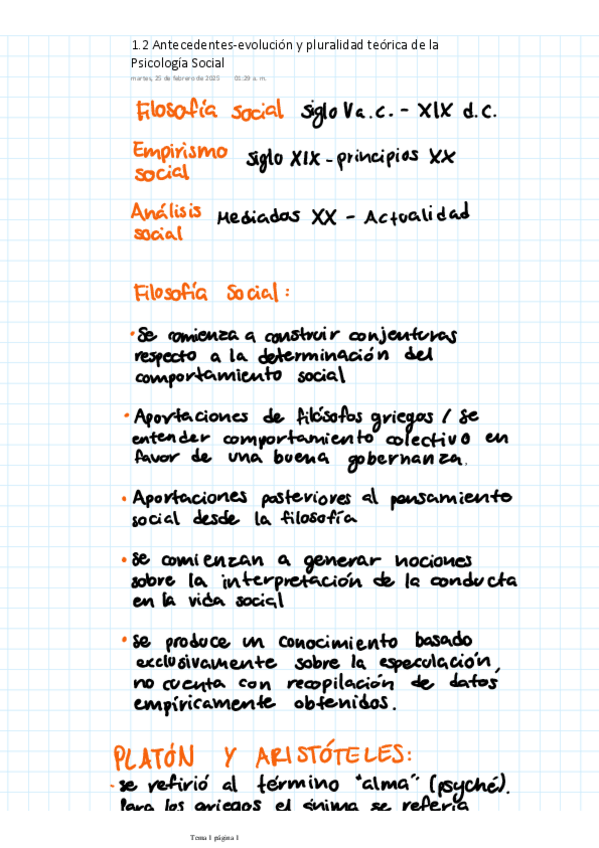 1.2 Antecedentes-evolución y pluralidad teórica de la
Psicología Social
martes, 25 de febrero de 2025 01:29 a. m.
Filosofía social siglo V a.c. - XIX d.c.
Empirismo
social siglo XIX - principios XX
Análisis
social Mediados XX - Actualidad
Filosofía Social:
• Se comienza a construir conjenturas
respecto a la determinación del
comportamiento social
• Aportaciones de filósofos griegos / se
entender comportamiento colectivo en
favor de una buena gobernanza.
• Aportaciones posteriores al pensamiento
social desde la filosofía
• Se comienzan a generar nociones
sobre la interpretación de la conducta
en la vida social
• Se produce un conocimiento basado
exclusivamente sobre la especulación,
no cuenta con recopilación de datos
empíricamente obtenidos.
PLATÓN Y ARISTÓTELES:
• se refirió al término "alma" (psyché).
Para los griegos el ánima se refería
Tema 1 página 1